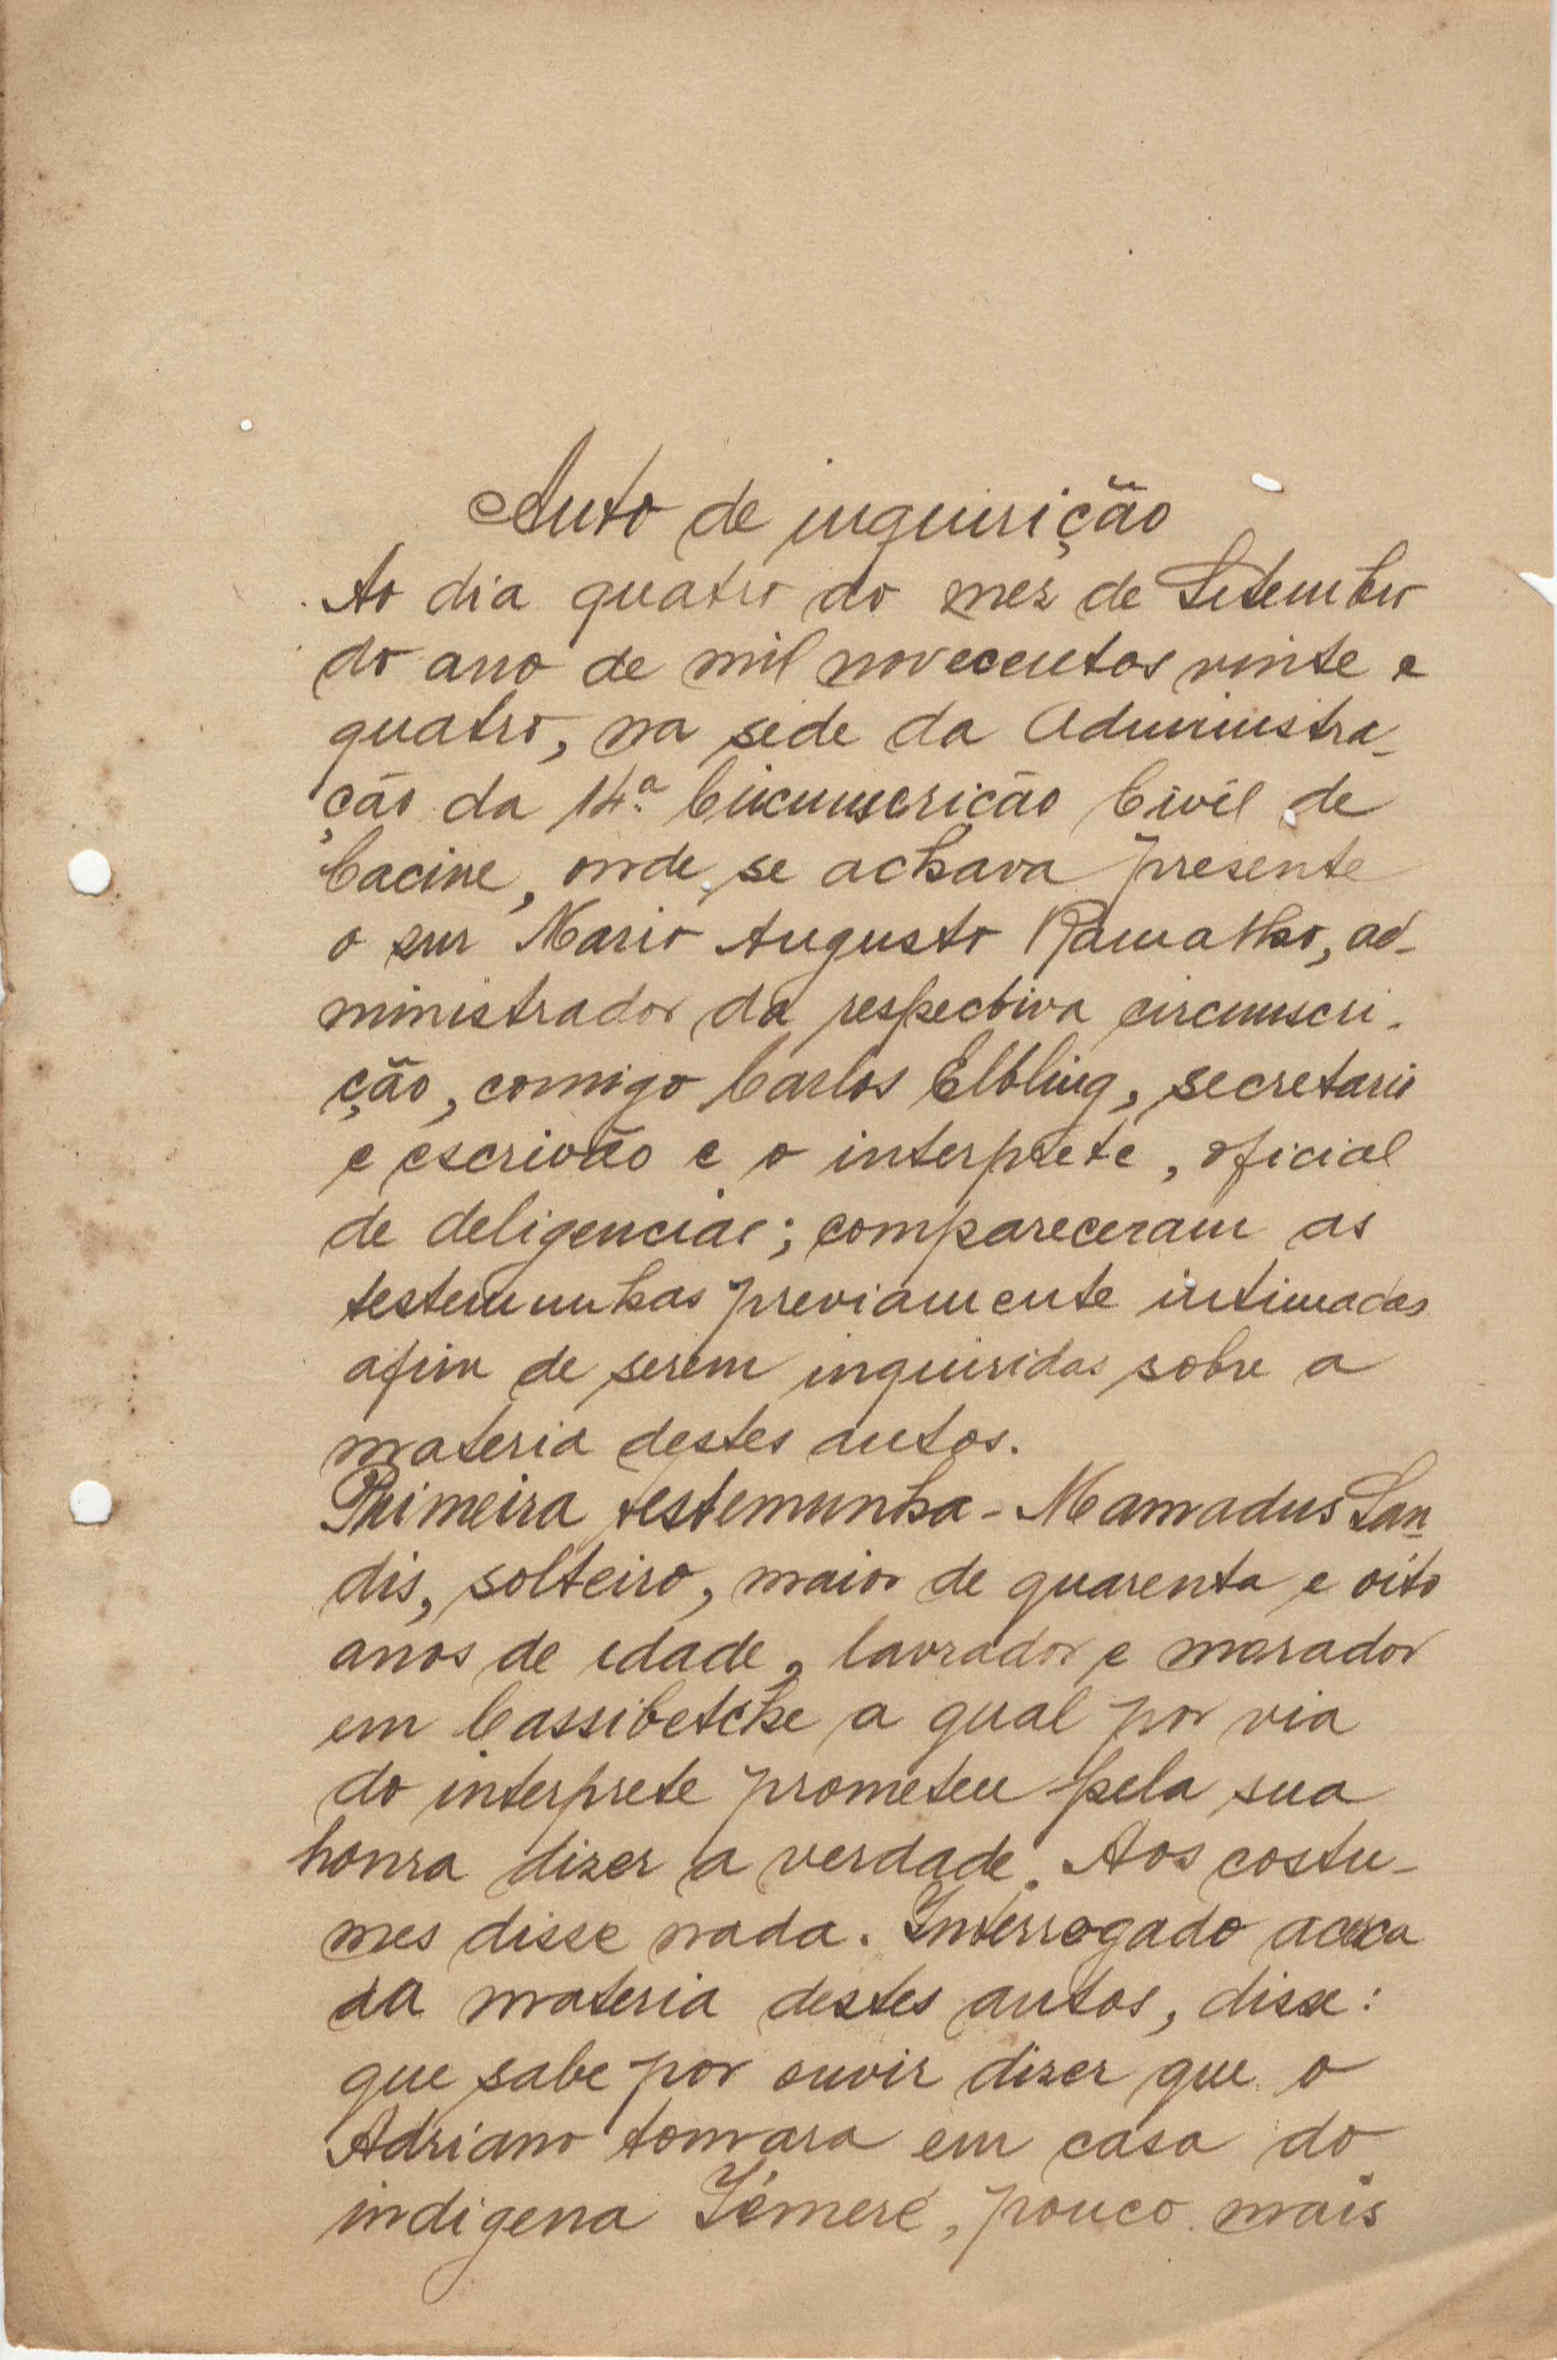 Auto de inquirição
Ao dia quatro do mez de Setembro
do ano de mil novecentos vinte e
quatro, na sede da Administra-
ção da 14.ª Circunscricão Civil de
Cacine, onde se achava presente
o snr Mario Augusto Ramalho, ad-
ministrador da respectiva circunscri-
ção, comigo Carlos Elbling, secretario
e escrivão e o interprete, oficial
de deligencias; compareceram as
testemunhas previamente intimadas
afim de serem inquiridas sobre a
materia destes autos.
Primeira testemunha - Mamadus San
dis, solteiro, maior de quarenta e oito
anos de idade, lavrador e morador
em Cassibetche a qual por via
do interprete prometeu pela sua
honra dizer a verdade. Aos costu-
mes disse nada. Interrogado acerca
da materia destes autos, disse:
que sabe por ouvir dizer que o
Adriano tomara em casa do
indigena Iémeré, pouco mais